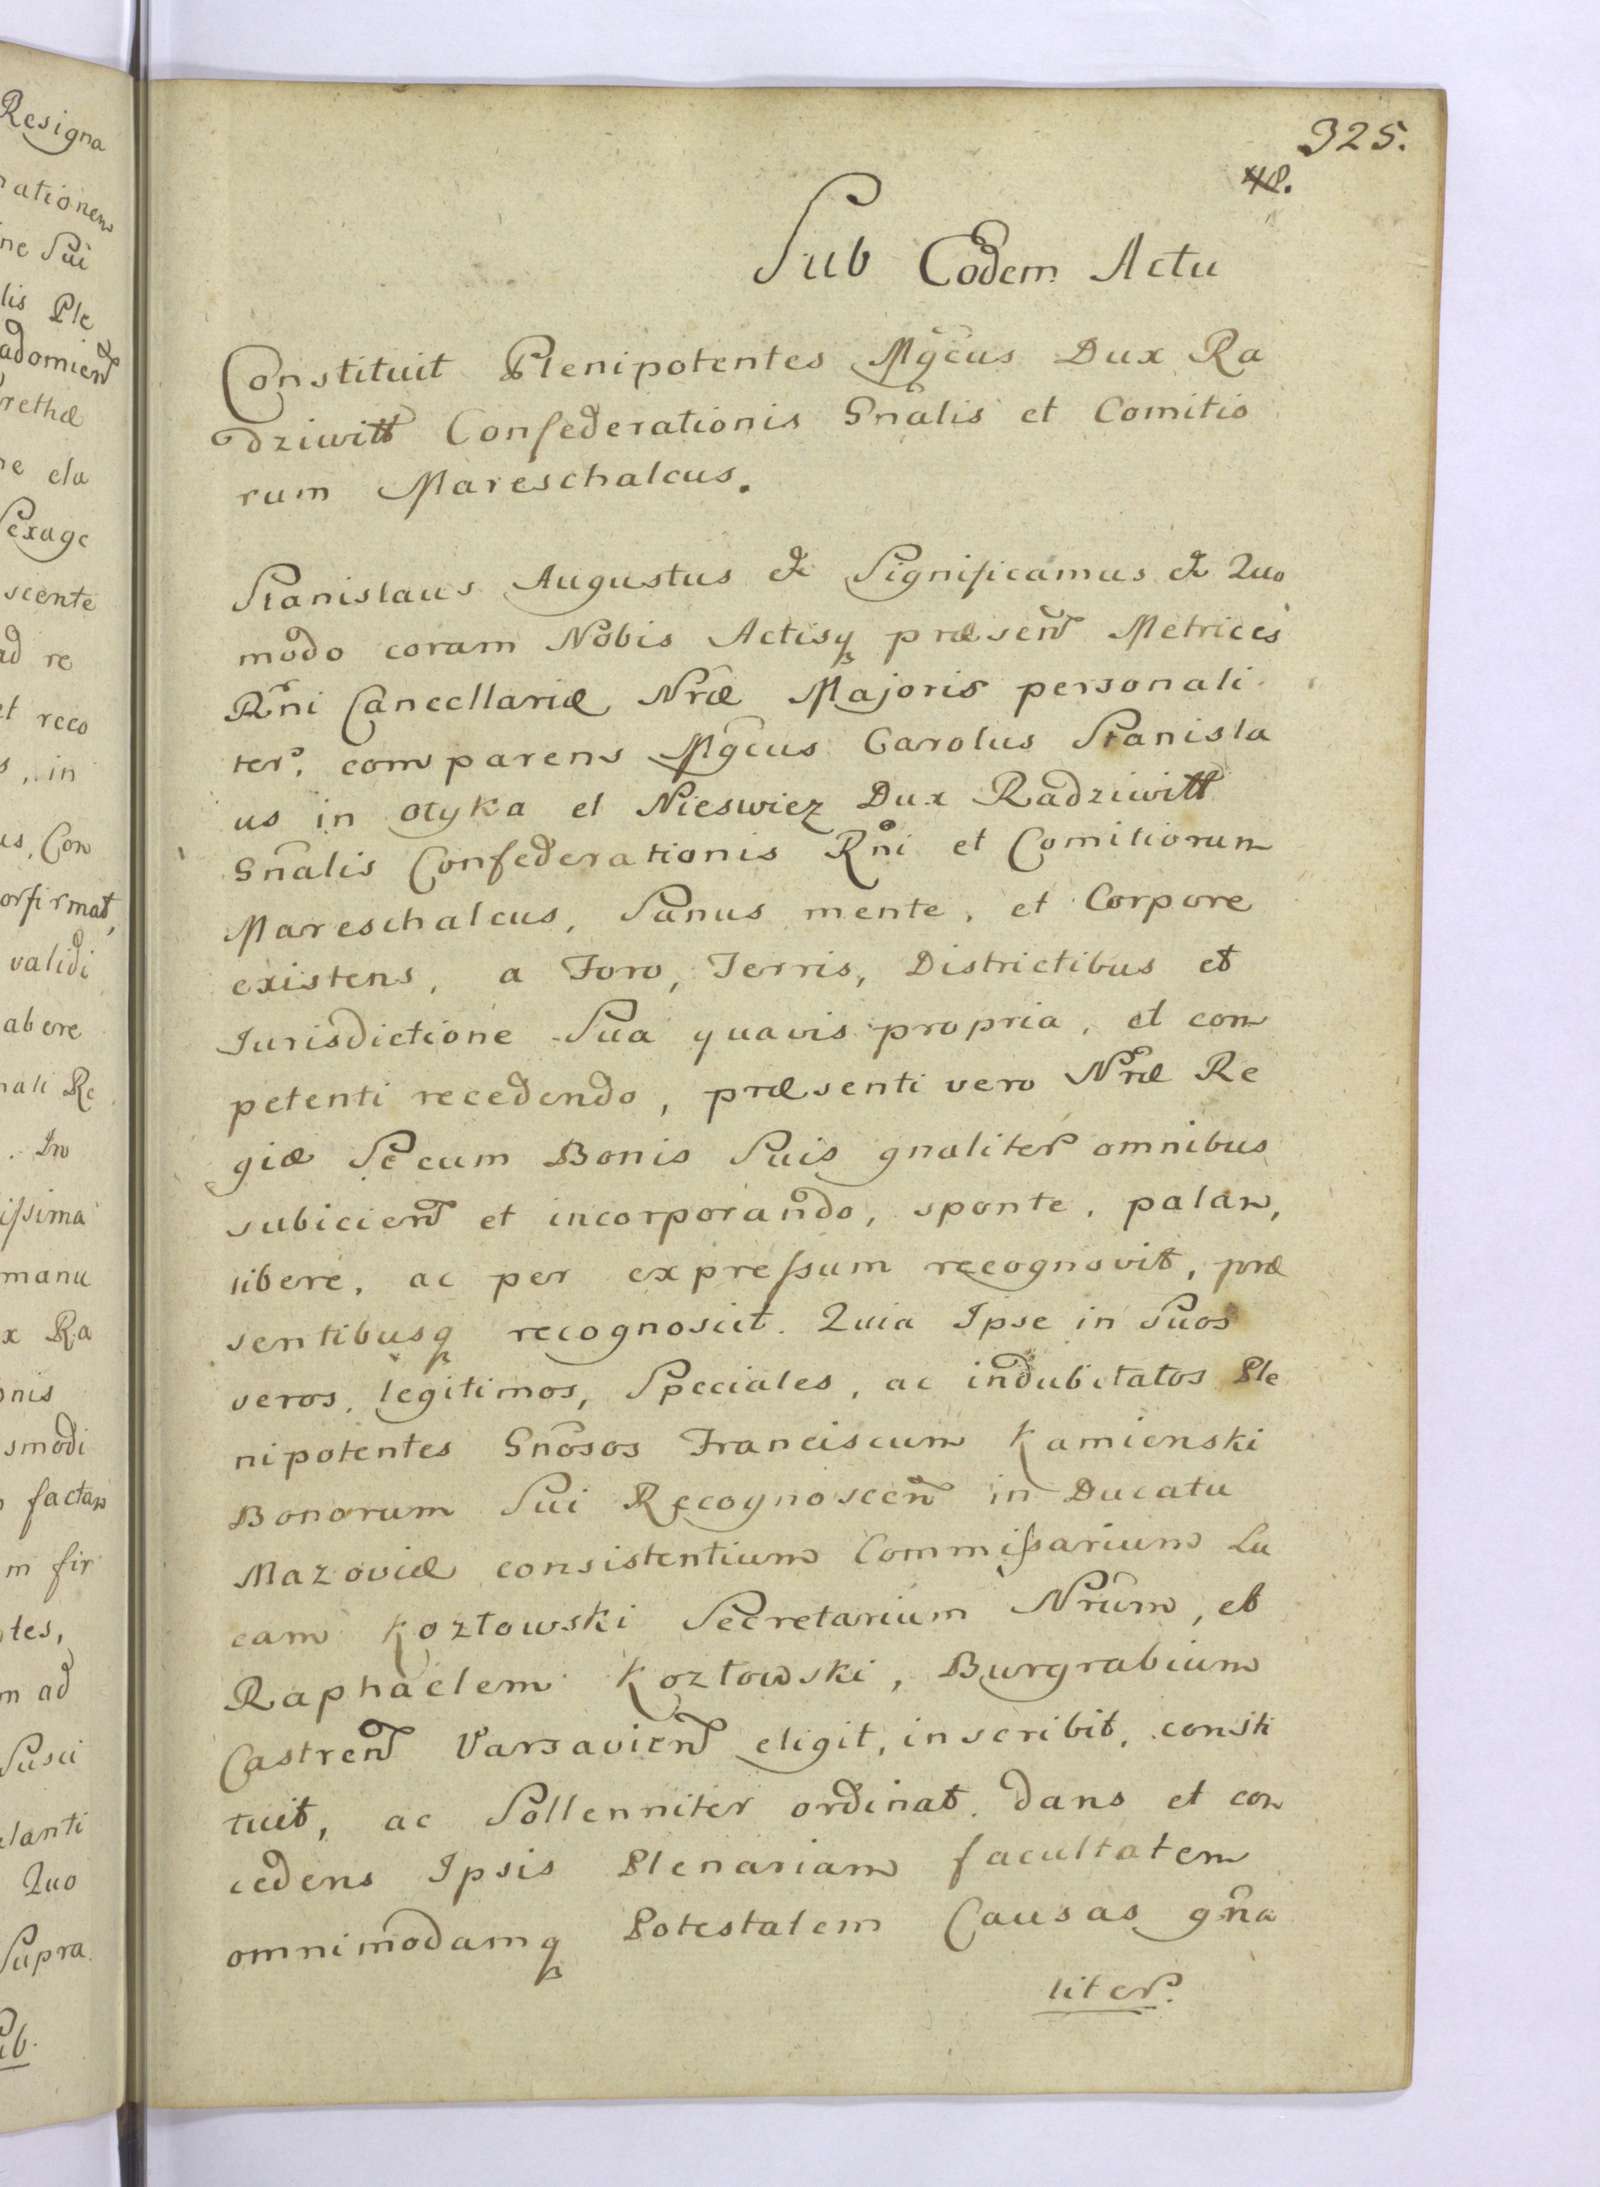 Resigna
ationem
ne Sui
lis Ple
adomien
rethæ
ne ela
Sexage
scente
ad re
et reco
s, in
us, Con
orfirmat,
validi
abere
nali Re
. In
issima
manu
x Ra
onis
smodi
factam
m fir
tes,
m ad
Susci
elanti
Quo
Supra.
ub.
325.
48.
Sub Eodem Actu
Constituit Plenipotentes Mgcus Dux Ra
dziwiłł Confederationis Gnalis et Comitio
rum Mareschalcus.
Stanislaus Augustus &c Significamus &c Quo
modo coram Nobis Actisq præsen Metrices
Rni Cancellariæ Nræ Majoris personali
ter, comparens Mgcus Carolus Stanisla
us in Ołyka et Nieswiez Dux Radziwiłł
Gnalis Confederationis Rni et Comitiorum
Mareschalcus, Sanus mente, et Corpore
existens, a Foro, Terris, Districtibus et
Jurisdictione Sua quavis propria, et com
petenti recedendo, præsenti vero Nræ Re
giæ Secum Bonis Suis gnaliter omnibus
subicien et incorporando, sponte, palam,
libere, ac per expressum recognovit, præ
sentibusq recognoscit. Quia Ipse in Suos
veros, legitimos, Speciales, ac indubitatos Ple
nipotentes Gnosos Franciscum Kamienski
Bonorum Sui Recognoscen in Ducatu
Mazoviæ consistentium Commissarium Lu
cam Kozłowski Secretarium Nrum, et
Raphaelem Kozłowski, Burgrabium
Castren Varsavien eligit, inscribit, consti
tuit, ac Sollenniter ordinat. dans et con
cedens Ipsis Plenariam facultatem
omnimodamq Potestatem Causas gna
liter.